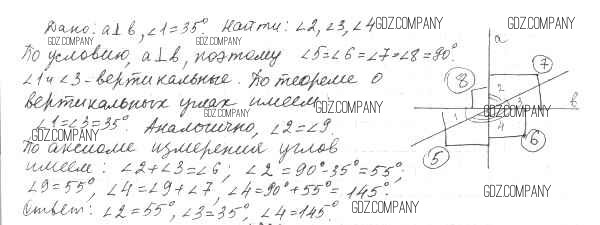 Дано: a⊥b, ∠1=35°. Найти: ∠2, ∠3, ∠4
GDZ.COMPANY
GDZ.COMPANY
GDZ.COMPANY
GDZ.COMPANY
По условию, a⊥b, поэтому ∠5=∠6=∠7=∠8=90°.
∠1 и ∠3 - вертикальные. По теореме о
вертикальных углах имеем
GDZ.COMPANY
GDZ.COMPANY
∠1=∠3=35°. Аналогично, ∠2=∠9.
GDZ.COMPANY
По аксиоме измерения углов
имеем: ∠2+∠3=∠6; ∠2=90°-35°=55°;
∠9=55°, ∠4=∠9+∠7, ∠4=90°+55°=145°.
Ответ: ∠2=55°, ∠3=35°, ∠4=145°.
GDZ.COMPANY
a
7
8
2
3
b
GDZ.COMPANY
1
4
5
6
GDZ.COMPANY